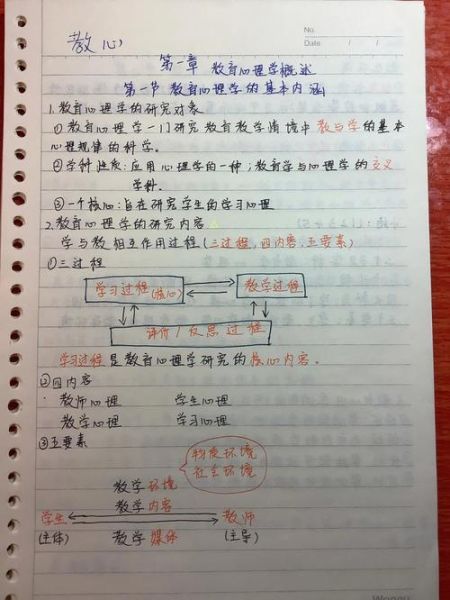 No.
Date / /
教心
第一章 教育心理学概述
第一节 教育心理学的基本内涵
1.教育心理学的研究对象
①教育心理学一门研究教育教学情境中教与学的基本
心理规律的科学。
②学科性质:应用心理学的一种;教育学与心理学的交叉
学科.
③一个核心:旨在研究学生的学习心理
2.教育心理学的研究内容
学与教相互作用过程(三过程,四内容,五要素)
①三过程
学习过程(核心) 教学过程
评价/反思过程
学习过程是教育心理学研究的核心内容。
②四内容
教师心理 学生心理
教学心理 学习心理
③五要素
物质环境
社会环境
教学环境
教学内容
学生 教师
(主体) 教学媒体 (主导)